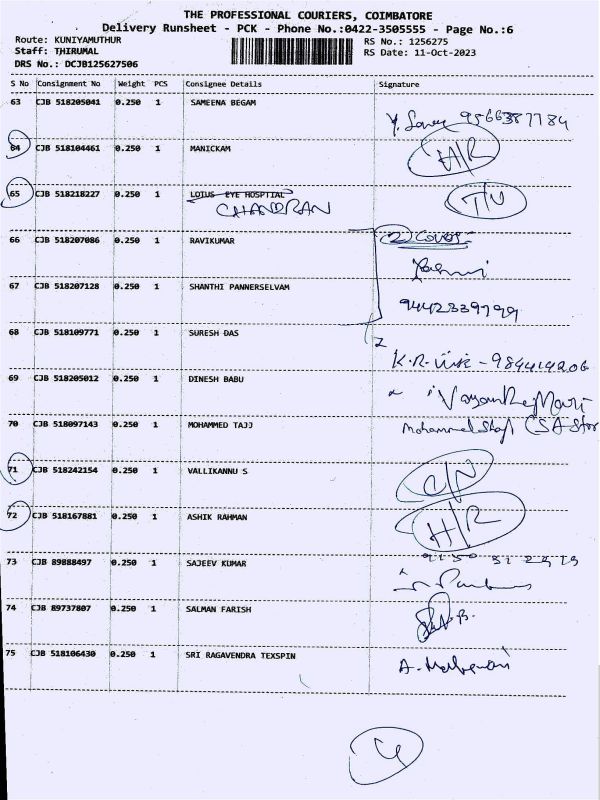 THE PROFESSIONAL COURIERS, COIMBATORE
Delivery Runsheet - PCK - Phone No.:0422-3505555 - Page No.:6
Route: KUNIYAMUTHUR
RS No.: 1256275
Staff: THIRUMAL
RS Date: 11-Oct-2023
DRS No.: DCJB125627506
S No Consignment No Weight PCS Consignee Details Signature
63 CJB 518205041 0.250 1 SAMEENA BEGAM
9566387784
64 CJB 518104461 0.250 1 MANICKAM H/R
65 CJB 518218227 0.250 1 LOTUS EYE HOSPTIAL
CHANDRAN
66 CJB 518207086 0.250 1 RAVIKUMAR 2 COVER
67 CJB 518207128 0.250 1 SHANTHI PANNERSELVAM
9442339799
68 CJB 518109771 0.250 1 SURESH DAS
K.R. - 9844149206
69 CJB 518205012 0.250 1 DINESH BABU
70 CJB 518097143 0.250 1 MOHAMMED TAJJ
71 CJB 518242154 0.250 1 VALLIKANNU S C/N
72 CJB 518167881 0.250 1 ASHIK RAHMAN H/R
73 CJB 89888497 0.250 1 SAJEEV KUMAR
74 CJB 89737807 0.250 1 SALMAN FARISH
75 CJB 518106430 0.250 1 SRI RAGAVENDRA TEXSPIN
4